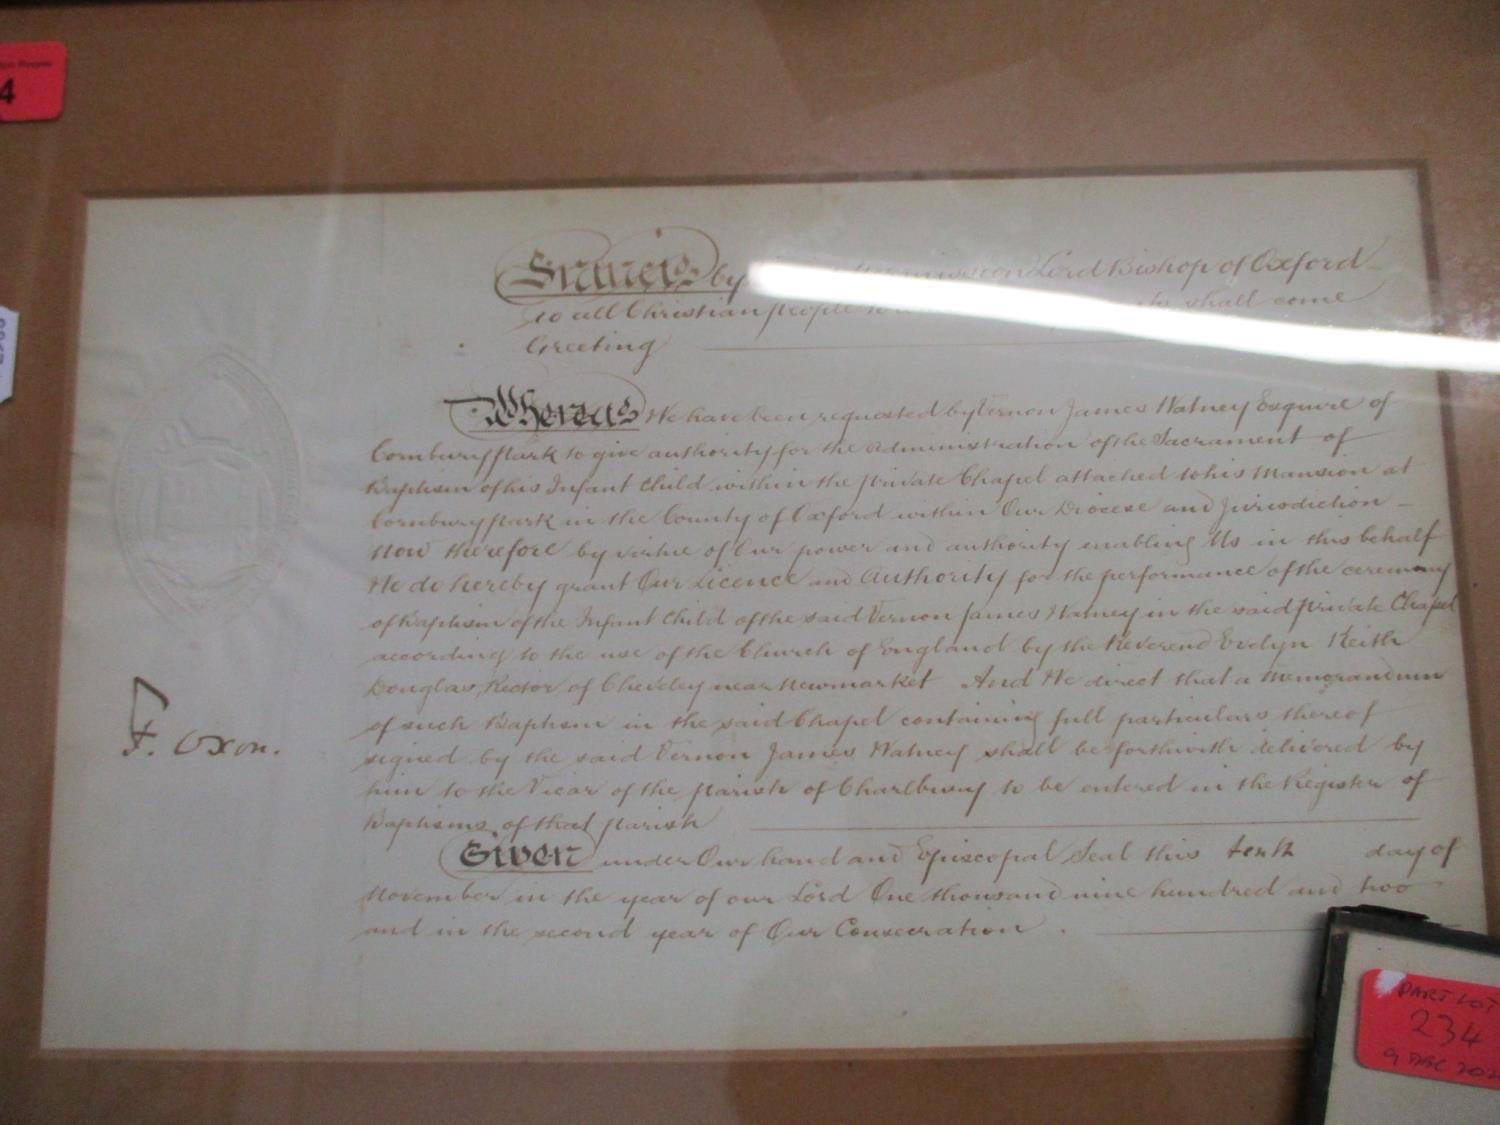 4
Francis by Lord Bishop of Oxford
to all Christian people to shall come
Greeting
Whereas We have been requested by Vernon James Watney Esquire of
Cornbury Park to give authority for the administration of the Sacrament of
Baptism of his Infant Child within the private Chapel attached to his Mansion at
Cornbury Park in the County of Oxford within Our Diocese and Jurisdiction
Now therefore by virtue of Our power and authority enabling Us in this behalf
We do hereby grant Our Licence and Authority for the performance of the ceremony
of Baptism of the Infant Child of the said Vernon James Watney in the said private Chapel
according to the use of the Church of England by the Reverend Evelyn Keith
Douglas, Rector of Cheveley near Newmarket And We direct that a Memorandum
of such Baptism in the said Chapel containing full particulars thereof
signed by the said Vernon James Watney shall be forthwith delivered by
him to the Vicar of the parish of Charlbury to be entered in the Register of
Baptisms of that parish
Given under Our hand and Episcopal Seal this tenth day of
November in the year of our Lord One thousand nine hundred and two
and in the second year of Our Consecration.
F. Oxon.
PART LOT
234
9 DEC